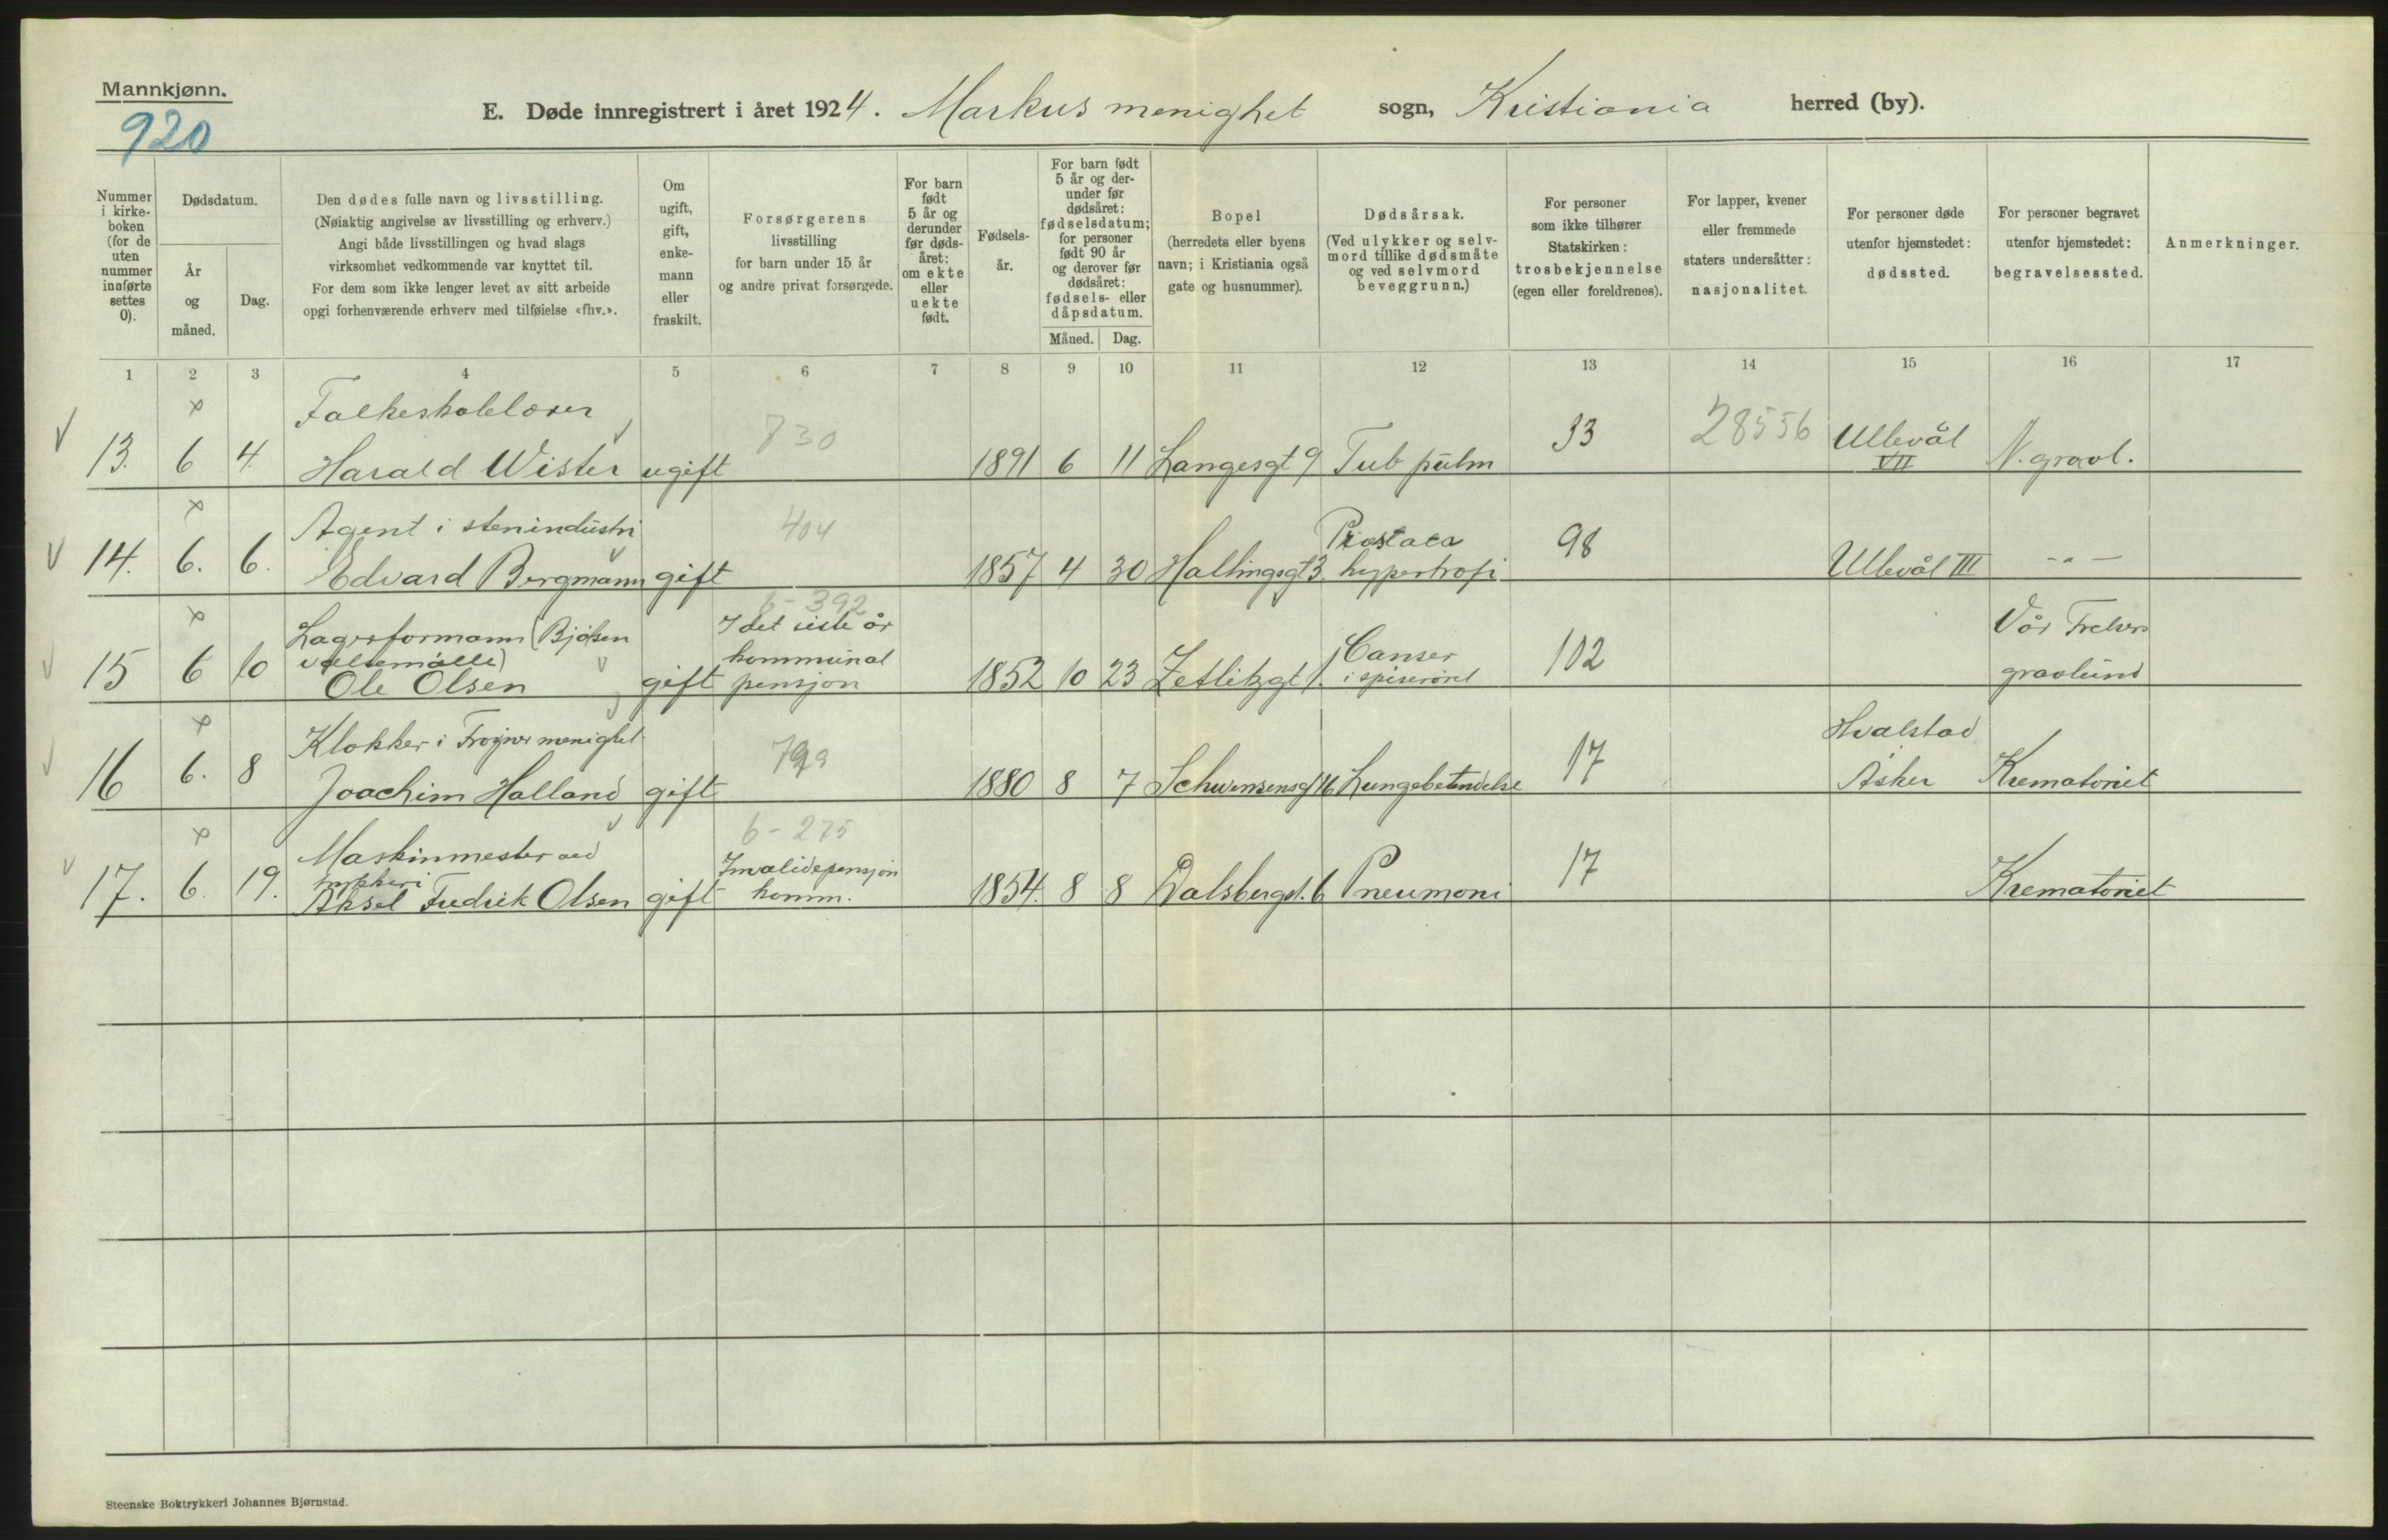 Mannkjønn.
920
E. Døde innregistrert i året 1924. Markus menighet sogn, Kristiania herred (by).
Nummer i kirke-boken (for de uten nummer innførte settes 0).
Dødsdatum.
År og måned.
Dag.
Den dødes fulle navn og livsstilling.
(Nøiaktig angivelse av livsstilling og erhverv.)
Angi både livsstillingen og hvad slags
virksomhet vedkommende var knyttet til.
For dem som ikke lenger levet av sitt arbeide
opgi forhenværende erhverv med tilføielse «fhv.».
Om ugift, gift, enke-mann eller fraskilt.
Forsørgerens
livsstilling
for barn under 15 år
og andre privat forsørgede.
For barn født 5 år og derunder før døds-året: om ekte eller uekte født.
Fødsels-år.
For barn født 5 år og der-under før dødsåret: fødselsdatum; for personer født 90 år og derover før dødsåret: fødsels- eller dåpsdatum.
Måned. Dag.
Bopel
(herredets eller byens
navn; i Kristiania også
gate og husnummer).
Dødsårsak.
(Ved ulykker og selv-
mord tillike dødsmåte
og ved selvmord
beveggrunn.)
For personer
som ikke tilhører
Statskirken:
trosbekjennelse
(egen eller foreldrenes).
For lapper, kvener
eller fremmede
staters undersåtter:
nasjonalitet.
For personer døde
utenfor hjemstedet:
dødssted.
For personer begravet
utenfor hjemstedet:
begravelsessted.
Anmerkninger.
1 2 3 4 5 6 7 8 9 10 11 12 13 14 15 16 17
Folkeskolelærer
830 33 28556 Ullevål
13. 6 4. Harald Wister ugift 1891 6 11 Langesgt 9 Tub pulm VII N. gravl.
Agent i stenindustri
404 Prostata 98
14. 6. 6. Edvard Bergmann gift 1857 4 30 Hallingsgt 3. hypertrofi Ullevål III -"-
6-392
Lagerformann (Bjølsen I det siste år Vår Frelsers
valsemølle) kommunal Canser 102
15 6 10 Ole Olsen gift pensjon 1852 10 23 Zetlitzgt 1. i spiserøret gravlund
Klokker i Frogner menighet Hvalstad
799 17
16 6. 8 Joachim Halland gift 1880 8 7 Schwensensgt 16 Lungebetendelse Asker Krematoriet
6-275
Maskinmester ved Invalidepensjon 17
17. 6. 19. Aksel Fredrik Olsen gift komm. 1854. 8 8 Dalsbergst. 6 Pneumoni Krematoriet
Steenske Boktrykkeri Johannes Bjørnstad.